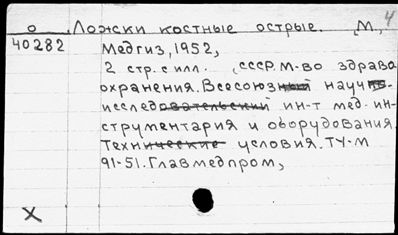 4
о Ложски костные острые. М,
40282 Медгиз, 1952,
2 стр. с илл. (СССР. М-во здраво
охранения. Всесоюзный научно-
исследовательский ин-т мед. ин-
струментария и оборудования.
Технические условия. ТУ-М
91-51. Главмедпром,
X